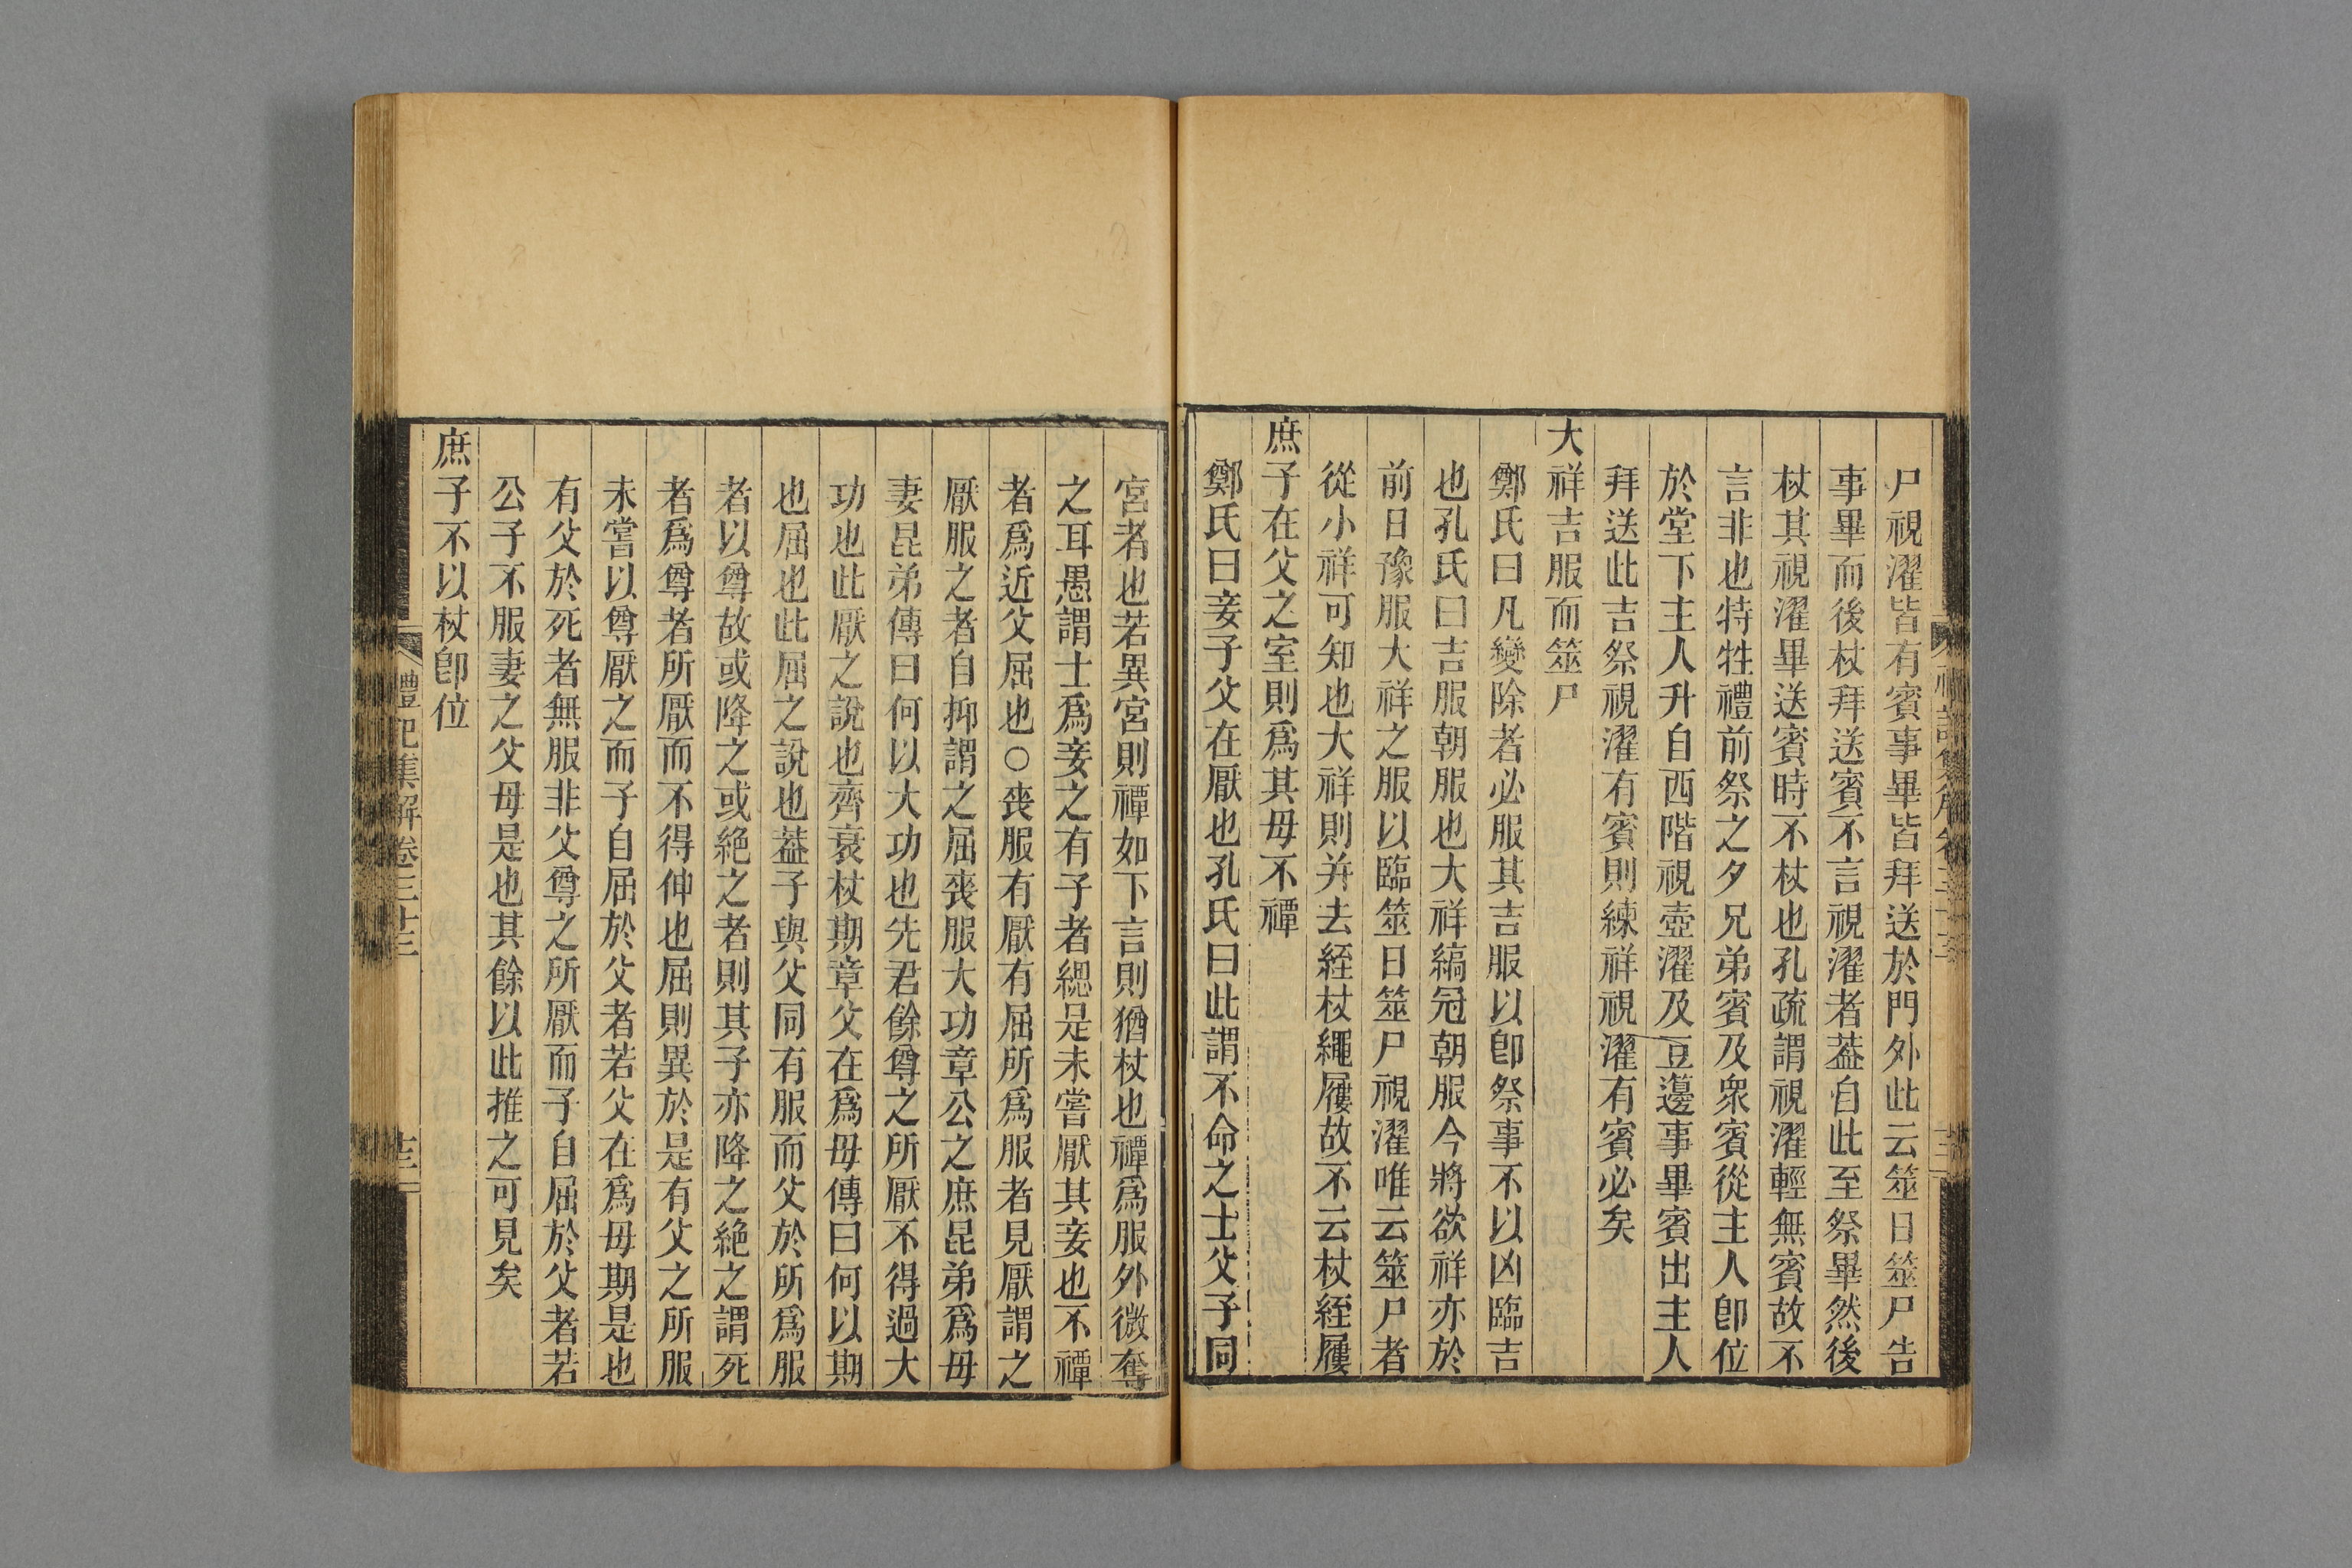 尸視濯皆有賓事畢皆拜送於門外此云筮日筮尸告
事畢而後杖拜送賓不言視濯者葢自此至祭畢然後
杖其視濯畢送賓時不杖也孔疏謂視濯輕無賓故不
言非也特牲禮前祭之夕兄弟賓及衆賓從主人卽位
於堂下主人升自西階視壺濯及豆籩事畢賓出主人
拜送此吉祭視濯有賓則練祥視濯有賓必矣
大祥吉服而筮尸
鄭氏曰凡變除者必服其吉服以卽祭事不以凶臨吉
也孔氏曰吉服朝服也大祥縞冠朝服今將欲祥亦於
前日豫服大祥之服以臨筮日筮尸視濯唯云筮尸者
從小祥可知也大祥則幷去絰杖繩屨故不云杖絰屨
庶子在父之室則爲其母不禫
鄭氏曰妾子父在厭也孔氏曰此謂不命之士父子同
宮者也若異宮則禫如下言則猶杖也禫爲服外微奪
之耳愚謂士爲妾之有子者緦是未嘗厭其妾也不禫
者爲近父屈也○喪服有厭有屈所爲服者見厭謂之
厭服之者自抑謂之屈喪服大功章公之庶昆弟爲母
妻昆弟傳曰何以大功也先君餘尊之所厭不得過大
功也此厭之說也齊衰杖期章父在爲母傳曰何以期
也屈也此屈之說也葢子與父同有服而父於所爲服
者以尊故或降之或絶之者則其子亦降之絶之謂死
者爲尊者所厭而不得伸也屈則異於是有父之所服
未嘗以尊厭之而子自屈於父者若父在爲母期是也
有父於死者無服非父尊之所厭而子自屈於父者若
公子不服妻之父母是也其餘以此推之可見矣
庶子不以杖卽位
禮記集解卷三十三